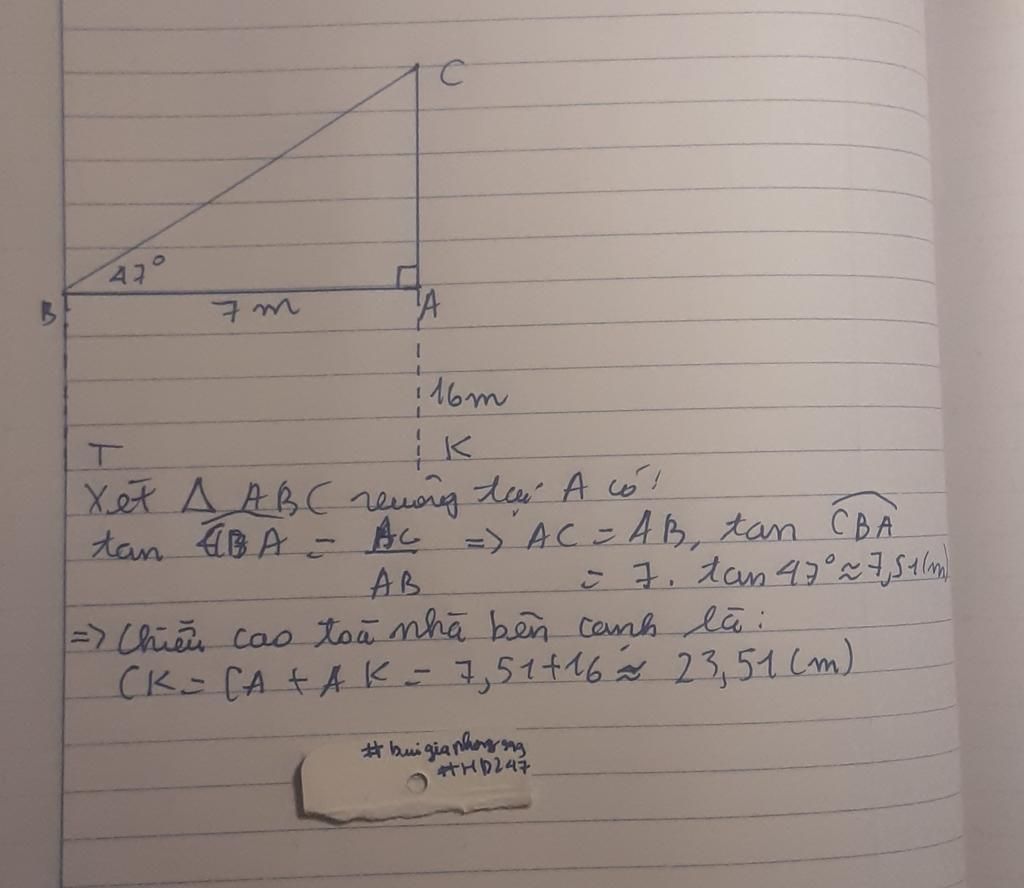 C
47°
B
7 m
A
16m
T
K
Xét Δ ABC vuông tại A có!
tan CBA = AC/AB => AC = AB, tan CBA
= 7. tan 47° ≈ 7,51(m)
=> Chiều cao toà nhà bên cạnh là:
CK = CA + AK = 7,51+16 ≈ 23,51 (m)
#HD247